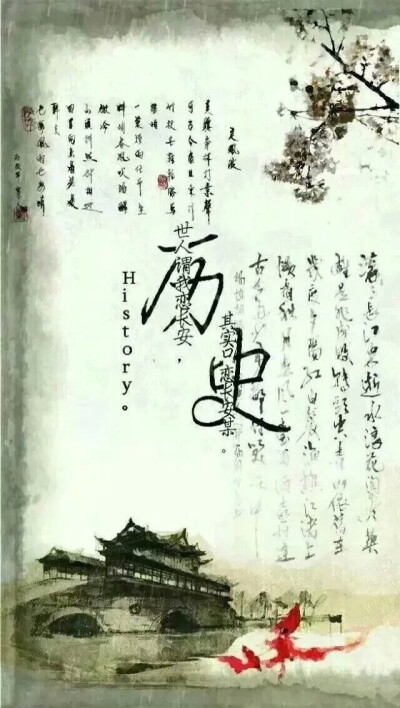 定風波
莫聽穿林打葉聲
何妨吟嘯且徐行
竹杖芒鞋輕勝馬
誰怕
一蓑煙雨任平生
料峭春風吹酒醒
微冷
山頭斜照却相迎
也無風雨也無晴
历史
History。
世人谓我恋长安，
其实只恋长安某。
滚滚长江东逝水浪花淘尽英
雄是非成败转头空青山依旧在
几度夕阳红白发渔樵江渚上
惯看秋月春风一壶浊酒喜相逢
古今多少事都付笑谈中